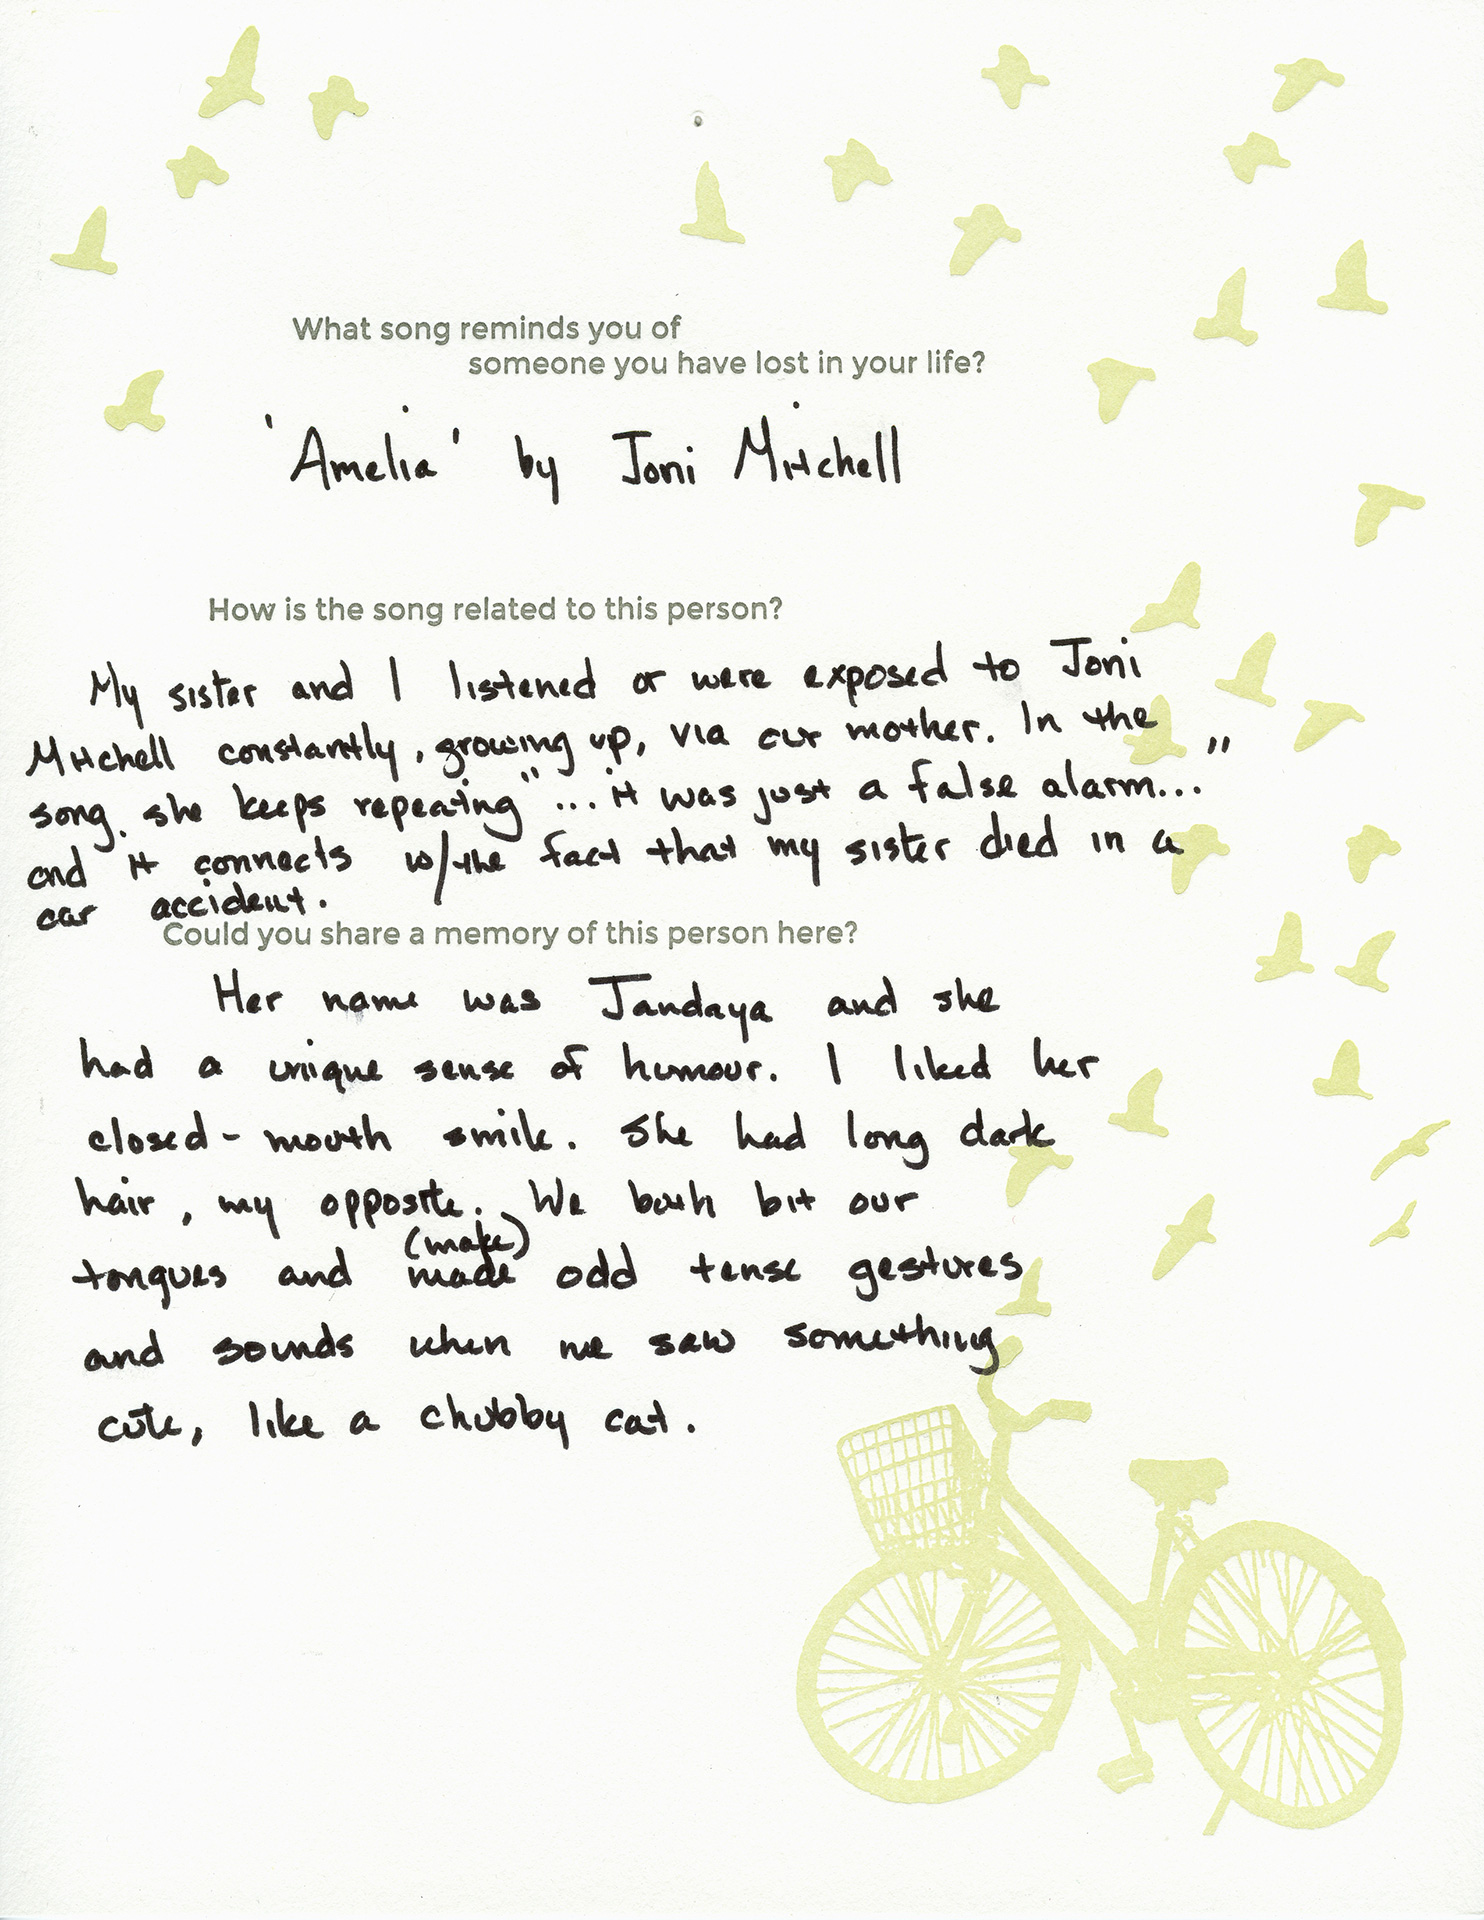 What song reminds you of
someone you have lost in your life?
'Amelia' by Joni Mitchell
How is the song related to this person?
My sister and I listened or were exposed to Joni
Mitchell constantly, growing up, via our mother. In the
song, she keeps repeating "...it was just a false alarm..."
and it connects w/the fact that my sister died in a
car accident.
Could you share a memory of this person here?
Her name was Jandaya and she
had a unique sense of humour. I liked her
closed-mouth smile. She had long dark
hair, my opposite. We both bit our
(make)
tongues and made odd tense gestures
and sounds when we saw something
cute, like a chubby cat.